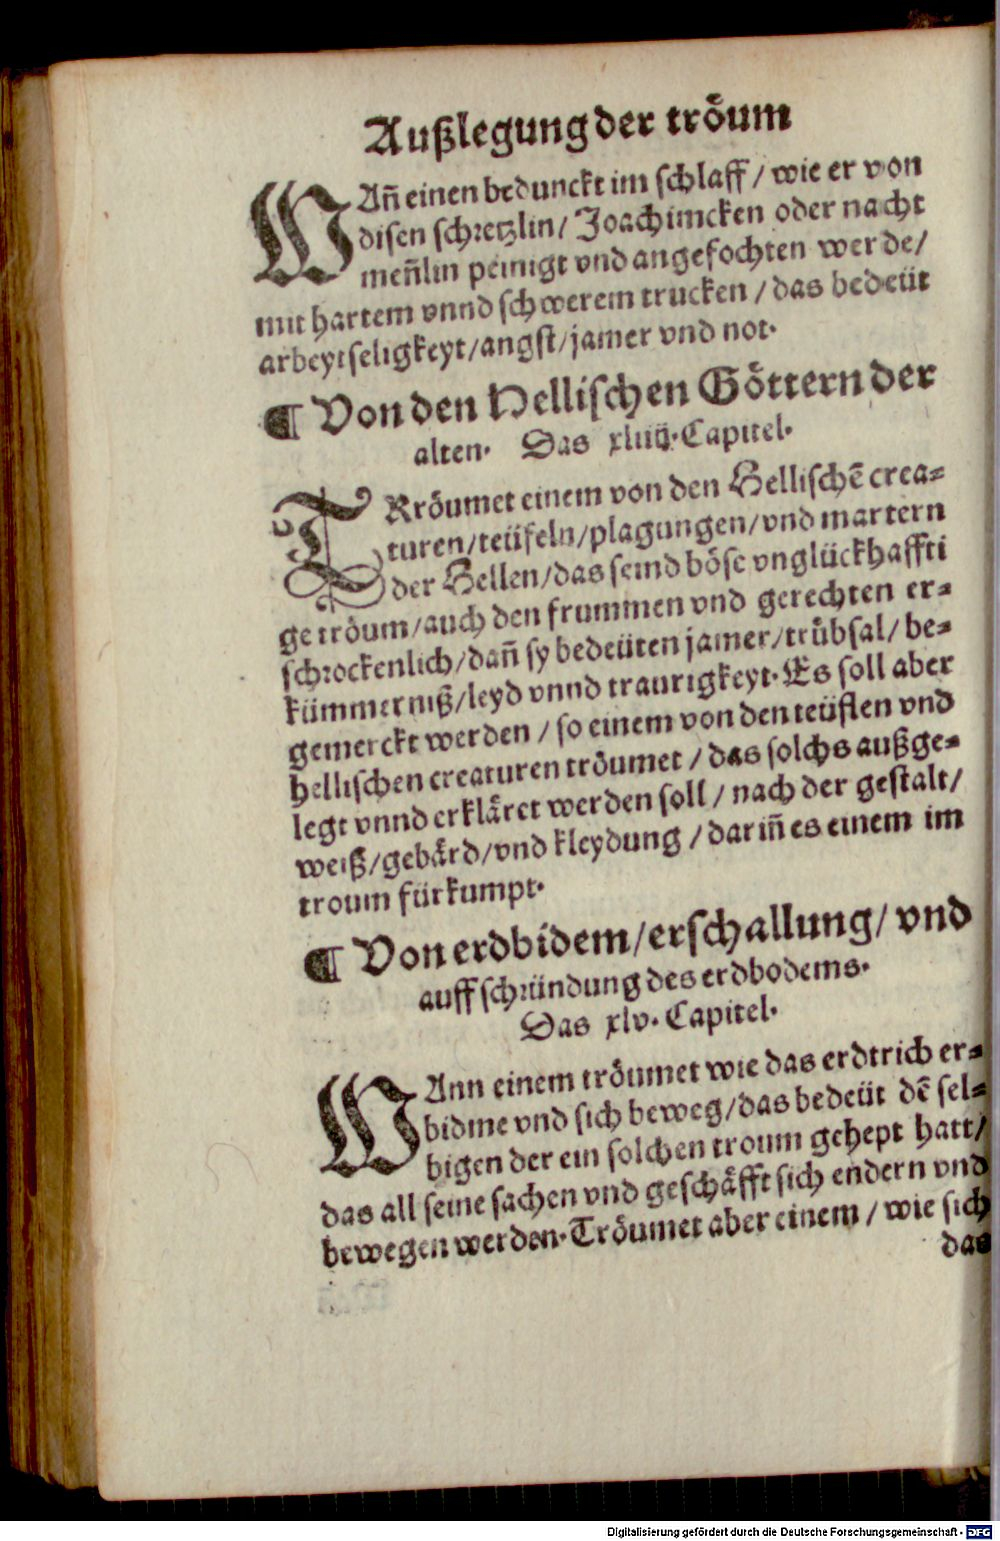 Außlegung der tröum
WAñ einen bedunckt im schlaff / wie er von
disen schretzlin / Joachimcken oder nacht
meñlin peinigt vnd angefochten werde /
mit hartem vnnd schwerem trucken / das bedeüt
arbeytseligkeyt / angst / jamer vnd not.
¶ Von den Hellischen Göttern der
alten. Das xliiij. Capitel.
TRröumet einem von den Hellischē crea⸗
turen / teüfeln / plagungen / vnd martern
der Hellen / das seind böse vnglückhaffti
ge tröum / auch den frummen vnd gerechten er⸗
schrockenlich / dañ sy bedeüten jamer / trübsal / be⸗
kümmerniß / leyd vnnd traurigkeyt. Es soll aber
gemerckt werden / so einem von den teüflen vnd
hellischen creaturen tröumet / das solchs außge⸗
legt vnnd erkläret werden soll / nach der gestalt /
weiß / gebärd / vnd kleydung / dariñ es einem im
troum fürkumpt.
¶ Von erdbidem / erschallung / vnd
auffschründung des erdbodems.
Das xlv. Capitel.
WAnn einem tröumet wie das erdtrich er⸗
bidme vnd sich beweg / das bedeüt dē sel⸗
bigen der ein solchen troum gehept hatt /
das all seine sachen vnd geschäfft sich endern vnd
bewegen werden. Tröumet aber einem / wie sich
das
Digitalisierung gefördert durch die Deutsche Forschungsgemeinschaft - DFG